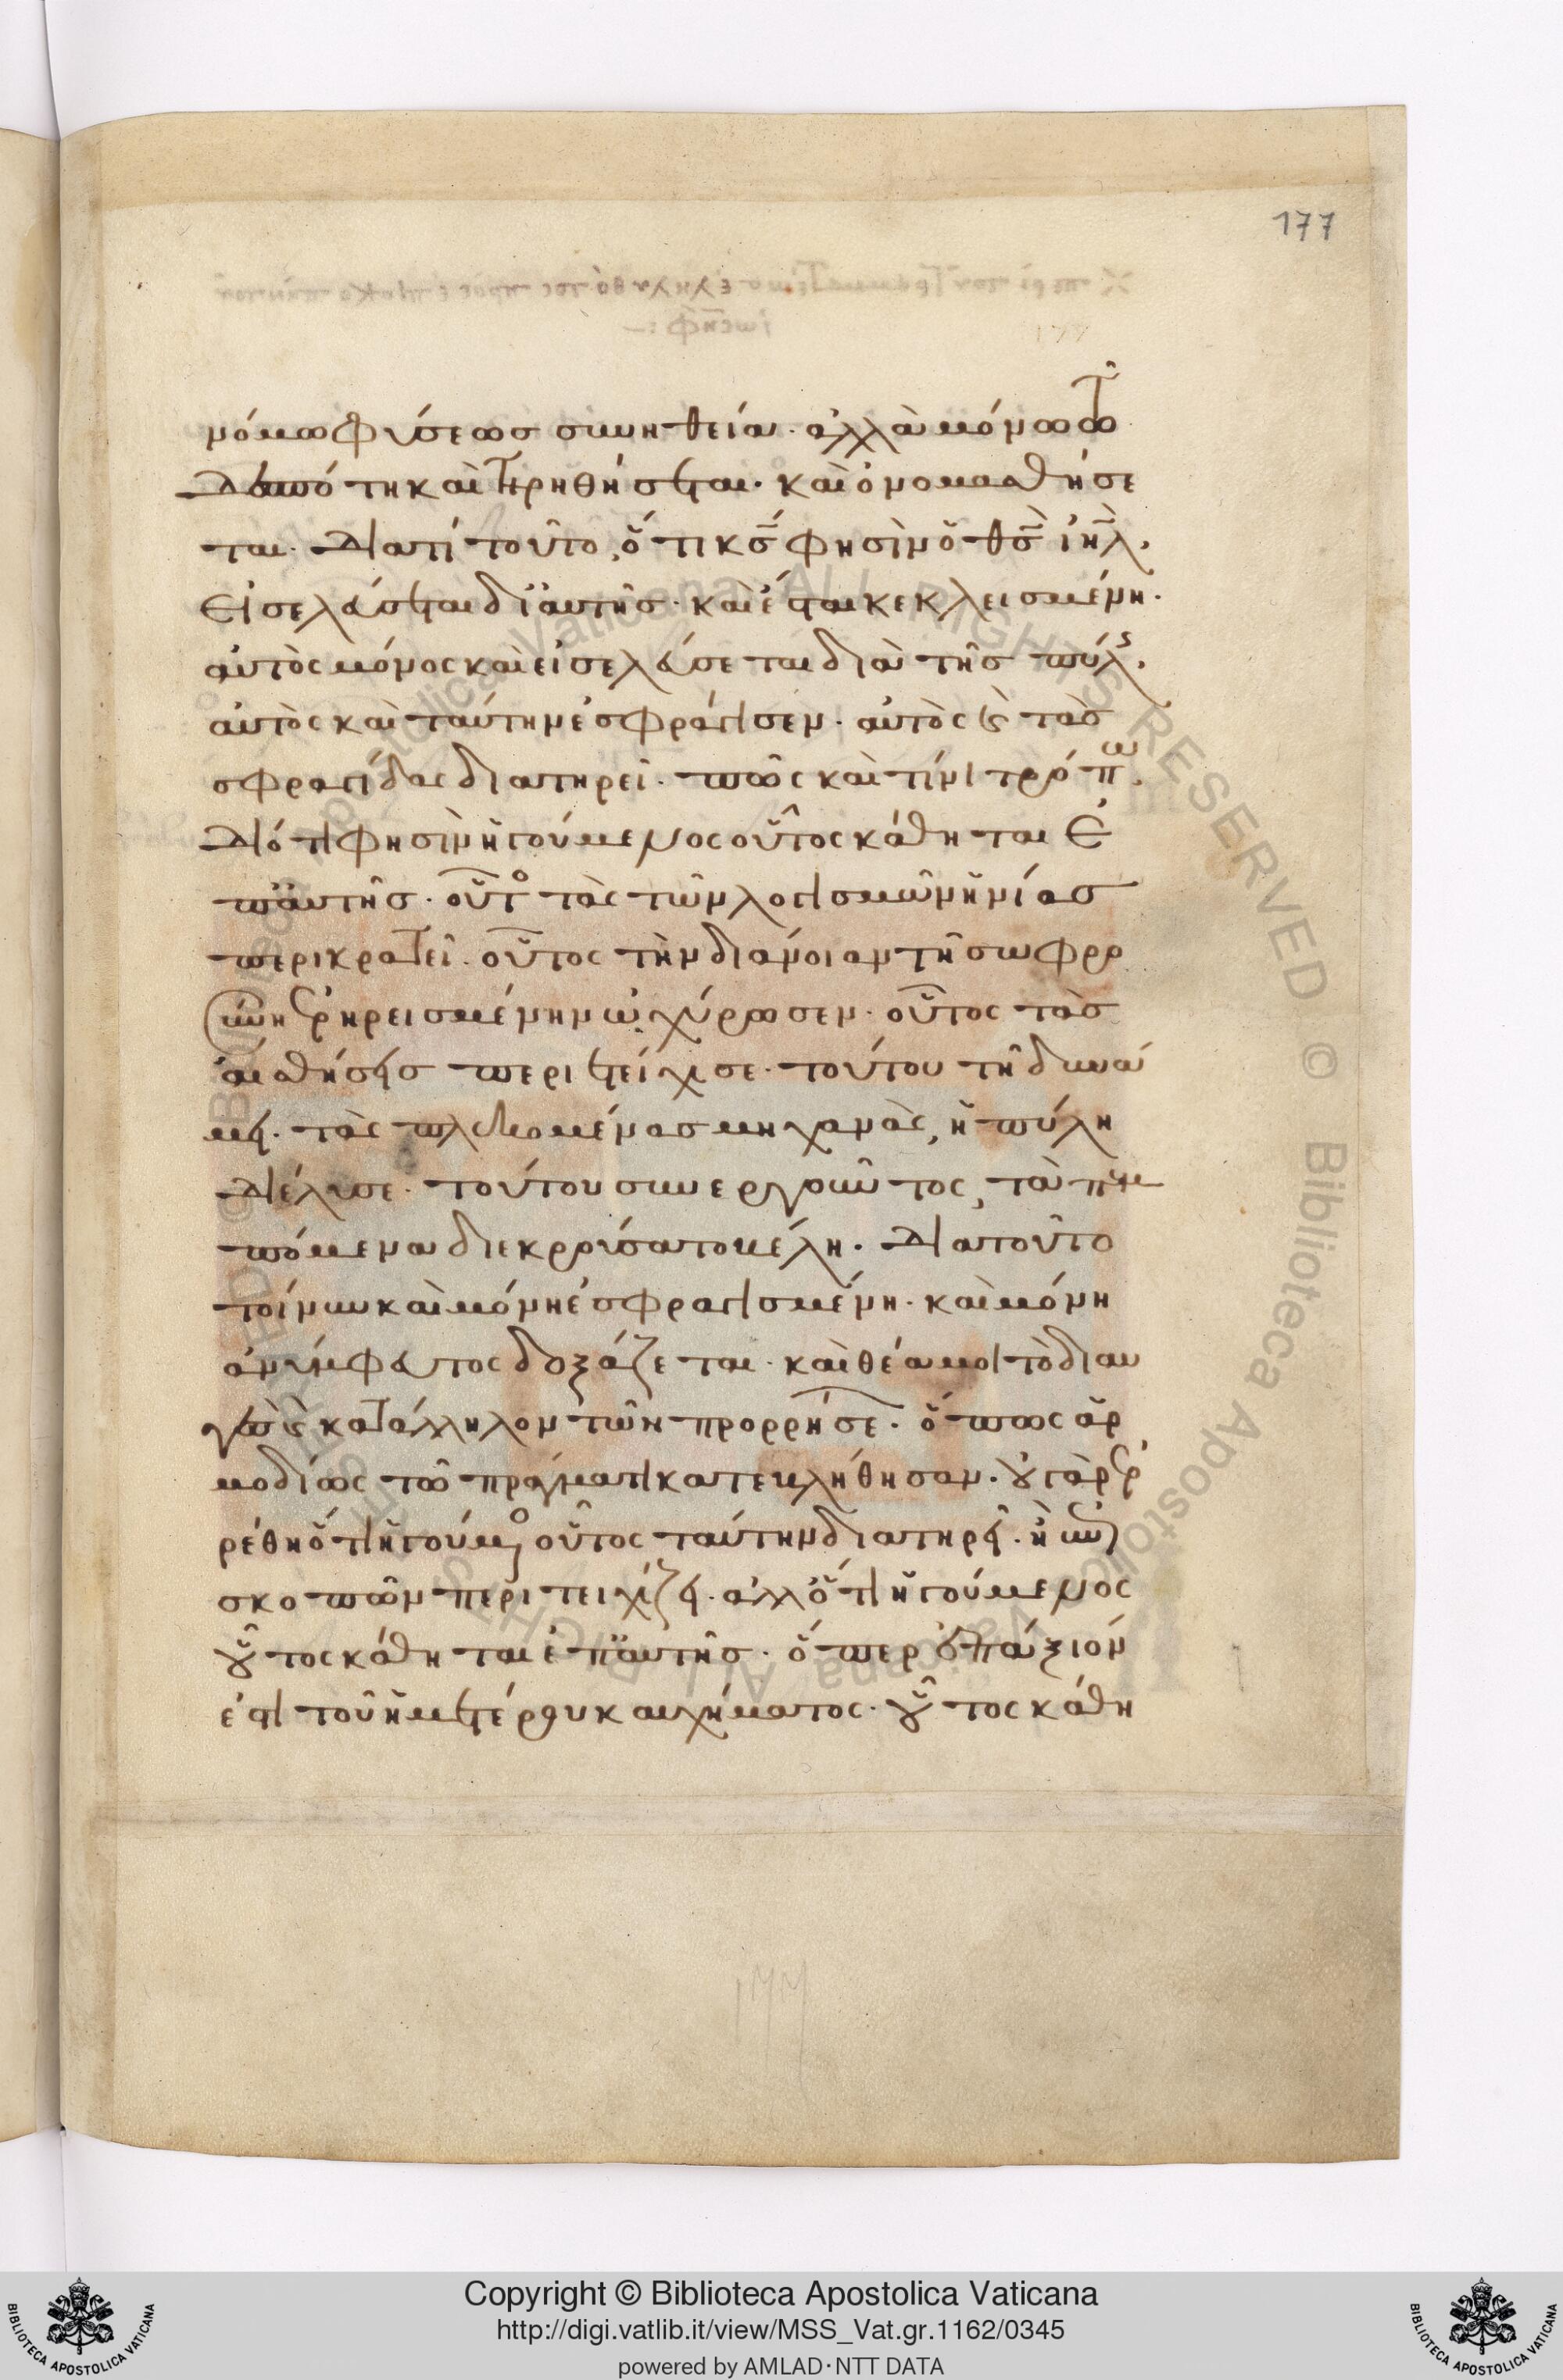 177
νόμω φύσεως συνηθεία· ἀλλὰ μόνω τῶ
δεσπότη καὶ τηρηθήσεται· καὶ ὀνομασθήσε
ται· Διατί τοῦτο, ὅτι κς φησὶν ὁ θς ιηλ·
Εἰσελεύσεται δι αὐτῆς· καὶ ἔσται κεκλεισμένη·
αὐτὸς μόνος καὶ εἰσελεύσεται διὰ τῆς πύλ·
αὐτὸς καὶ ταύτην ἐσφράγισεν· αὐτὸς ϗ τὰς
σφραγίδας διατηρεῖ· πῶς καὶ τίνι τρόπω·
Διότι φησὶν ἡγούμενος οὗτος κάθηται ἐ
π αὐτῆς· οὗτο τὰς τῶν λογισμῶν ἡνίας
περικρατεῖ· οὗτος τὴν διάνοιαν τῆ σωφρο
σύνη ἐρηρεισμένην ὠχύρωσεν· οὗτος τὰς
αἰσθήσεις περιετείχισε· τούτου τῆ δυνά
μει· τὰς πλεκομένας μηχανὰς, ἡ πύλη
διέλυσε· τούτου συνεργοῦντος, τὰ πεμ
πόμενα διεκρούσατο βέλη· Διατοῦτο
τοίνυν καὶ μόνη ἐσφραγισμένη· καὶ μόνη
ἀνύμφευτος δοξάζεται· καὶ θέα μοι τὸ διαυ
γὲς ϗ κατάλληλον τῶν προρρήσε· ὅπως ἁρ
μοδίως τῶ πράγματι κατεκλήθησαν· οὐ γὰρ ἐρ
ρέθη ὅτι ἡγούμενο οὗτος ταύτην διατηρεῖ· ἢ συ
σκοπῶν περιτειχίζει· ἀλλ ὅτι ἡγούμενος
οὗτος κάθηται ἐπ αὐτῆς· ὅπερ ἐπάξιόν
ἐστι τοῦ ἡμετέρου καυχήματος· οὗτος κάθη
Copyright © Biblioteca Apostolica Vaticana
http://digi.vatlib.it/view/MSS_Vat.gr.1162/0345
powered by AMLAD·NTT DATA
BIBLIOTECA APOSTOLICA VATICANA
BIBLIOTECA APOSTOLICA VATICANA